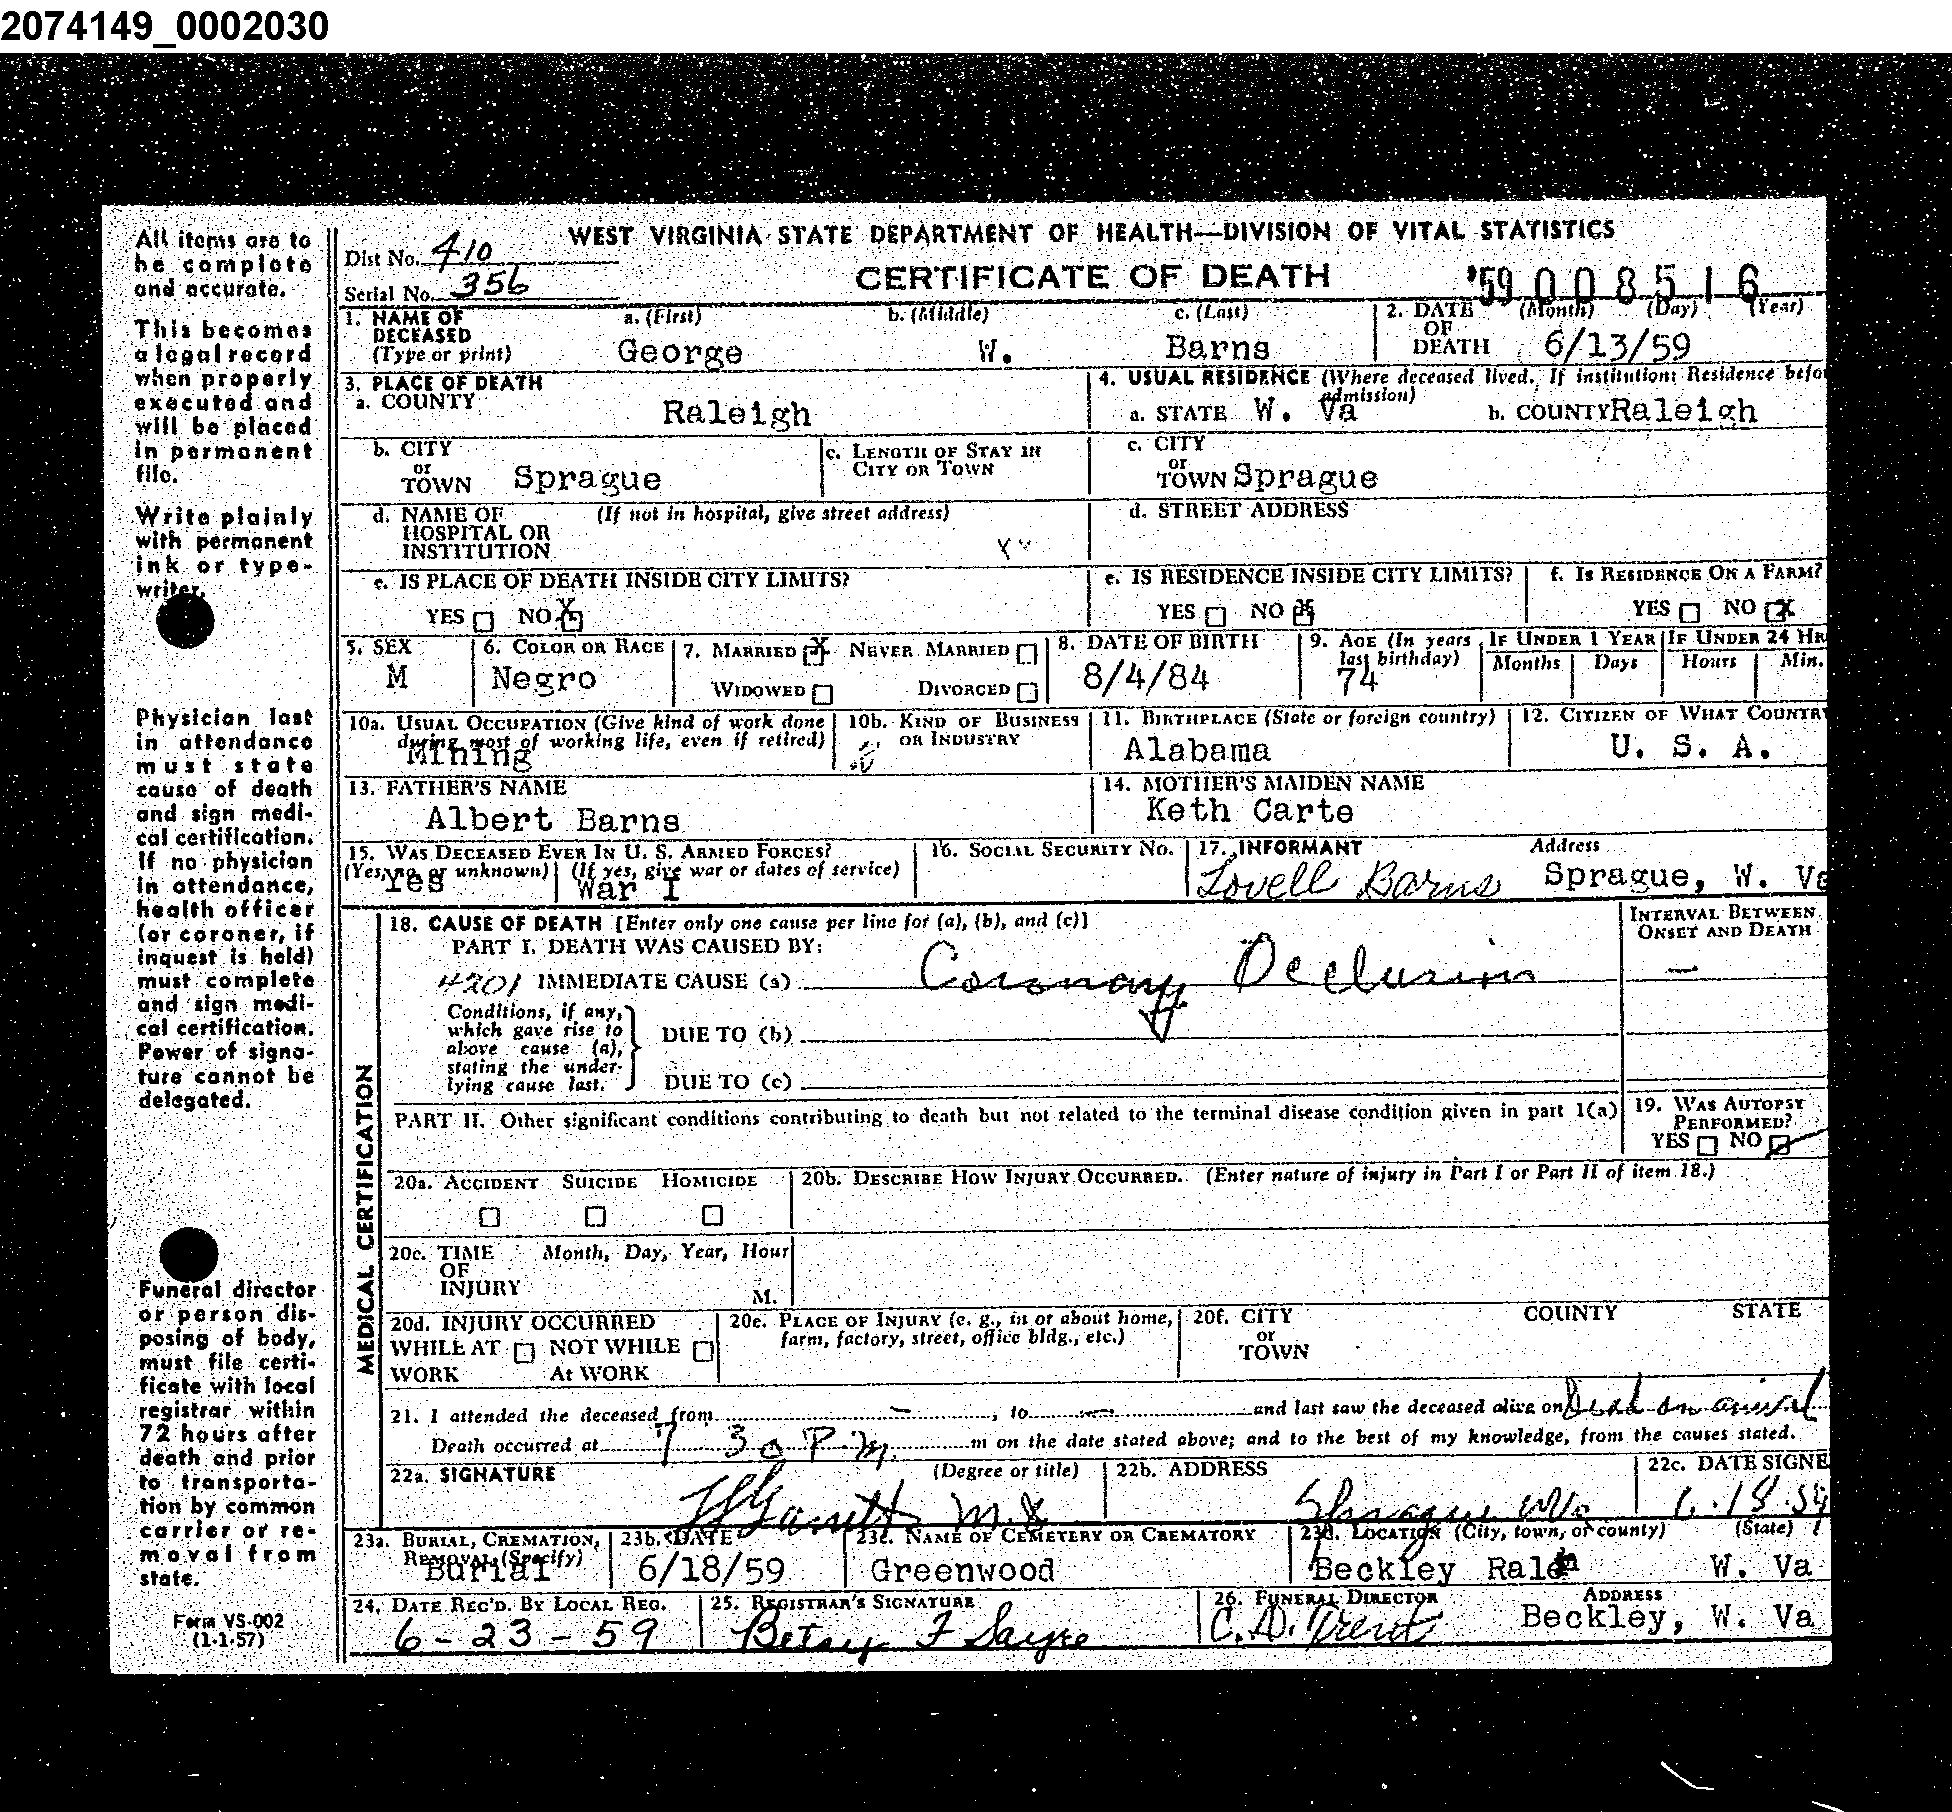 2074149_0002030
All items are to
be complete
and accurate.
This becomes
a legal record
when properly
executed and
will be placed
in permanent
file.
Write plainly
with permanent
ink or type-
writer.
Physician last
in attendance
must state
cause of death
and sign medi-
cal certification.
If no physician
in attendance,
health officer
(or coroner, if
inquest is held)
must complete
and sign medi-
cal certification.
Power of signa-
ture cannot be
delegated.
Funeral director
or person dis-
posing of body,
must file certi-
ficate with local
registrar within
72 hours after
death and prior
to transporta-
tion by common
carrier or re-
moval from
state.
Form VS-002
(1-1-57)
WEST VIRGINIA STATE DEPARTMENT OF HEALTH—DIVISION OF VITAL STATISTICS
Dist No. 410
CERTIFICATE OF DEATH '59 008516
Serial No. 356
1. NAME OF DECEASED (Type or print) a. (First) George b. (Middle) W. c. (Last) Barns
2. DATE OF DEATH (Month) (Day) (Year) 6/13/59
3. PLACE OF DEATH
a. COUNTY Raleigh
4. USUAL RESIDENCE (Where deceased lived. If institution: Residence befo
admission)
a. STATE W. Va b. COUNTY Raleigh
b. CITY or TOWN Sprague
c. LENGTH OF STAY IN CITY OR TOWN
c. CITY or TOWN Sprague
d. NAME OF HOSPITAL OR INSTITUTION (If not in hospital, give street address)
d. STREET ADDRESS
e. IS PLACE OF DEATH INSIDE CITY LIMITS?
YES NO X
e. IS RESIDENCE INSIDE CITY LIMITS?
YES NO X
f. IS RESIDENCE ON A FARM?
YES NO X
5. SEX M
6. COLOR OR RACE Negro
7. MARRIED X NEVER MARRIED
WIDOWED DIVORCED
8. DATE OF BIRTH 8/4/84
9. AGE (In years last birthday) 74
IF UNDER 1 YEAR Months Days
IF UNDER 24 HR Hours Min.
10a. USUAL OCCUPATION (Give kind of work done during most of working life, even if retired) Mining
10b. KIND OF BUSINESS OR INDUSTRY
11. BIRTHPLACE (State or foreign country) Alabama
12. CITIZEN OF WHAT COUNTR U. S. A.
13. FATHER'S NAME Albert Barns
14. MOTHER'S MAIDEN NAME Keth Carte
15. WAS DECEASED EVER IN U. S. ARMED FORCES?
(Yes, no, or unknown) Yes (If yes, give war or dates of service) War I
16. SOCIAL SECURITY NO.
17. INFORMANT Lovell Barns Address Sprague, W. Va
MEDICAL CERTIFICATION
18. CAUSE OF DEATH [Enter only one cause per line for (a), (b), and (c)]
PART I. DEATH WAS CAUSED BY:
INTERVAL BETWEEN ONSET AND DEATH
4201 IMMEDIATE CAUSE (a) Coronary Occlusion —
Conditions, if any, which gave rise to above cause (a), stating the under-lying cause last.
DUE TO (b)
DUE TO (c)
PART II. Other significant conditions contributing to death but not related to the terminal disease condition given in part 1(a)
19. WAS AUTOPSY PERFORMED?
YES NO
20a. ACCIDENT SUICIDE HOMICIDE
20b. DESCRIBE HOW INJURY OCCURRED. (Enter nature of injury in Part I or Part II of item 18.)
20c. TIME OF INJURY Month, Day, Year, Hour
M.
20d. INJURY OCCURRED
WHILE AT WORK NOT WHILE At WORK
20e. PLACE OF INJURY (e. g., in or about home, farm, factory, street, office bldg., etc.)
20f. CITY or TOWN COUNTY STATE
21. I attended the deceased from — , to — and last saw the deceased alive on Dead on arrival
Death occurred at 7 30 P.m. m on the date stated above; and to the best of my knowledge, from the causes stated.
22a. SIGNATURE Garrett M.D. (Degree or title)
22b. ADDRESS Sprague WVa
22c. DATE SIGNE 6.18.59
23a. BURIAL, CREMATION, REMOVAL (Specify) Burial
23b. DATE 6/18/59
23c. NAME OF CEMETERY OR CREMATORY Greenwood
23d. LOCATION (City, town, or county) (State) Beckley Raleh W. Va
24. DATE REC'D. BY LOCAL REG. 6-23-59
25. REGISTRAR'S SIGNATURE Betsy F Sayre
26. FUNERAL DIRECTOR C. D. Trent ADDRESS Beckley, W. Va